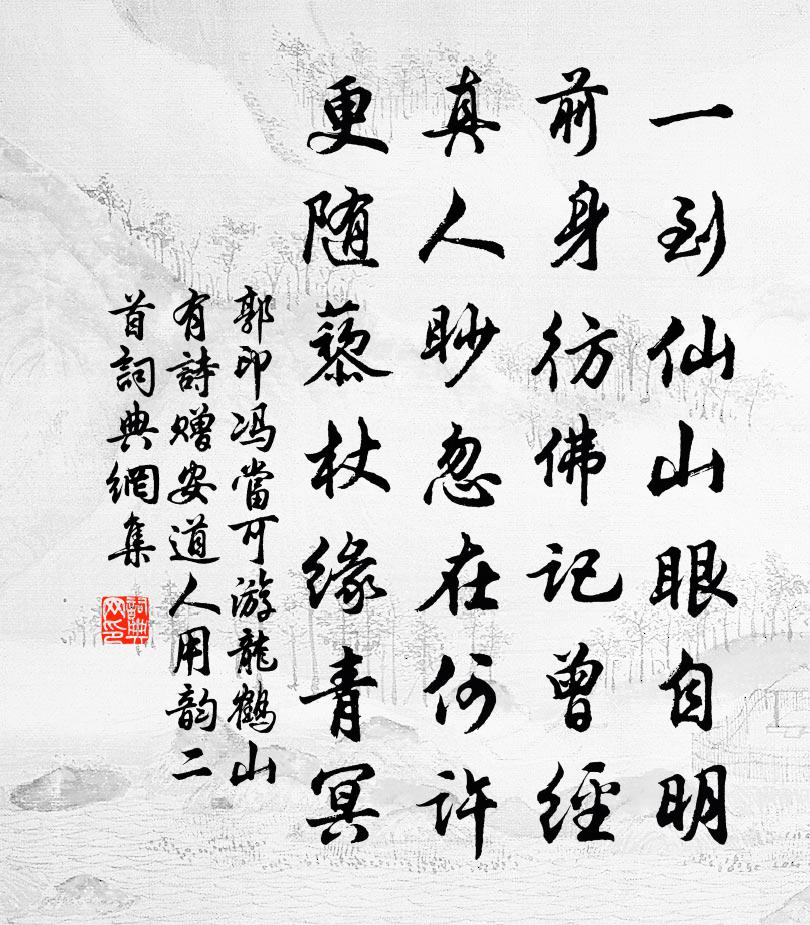 一到仙山眼自明
前身彷佛记曾經
真人眇忽在何许
更随藜杖缘青冥
郭印冯當可游龍鶴山
有詩赠安道人用韵二
首詞典網集
詞典网印